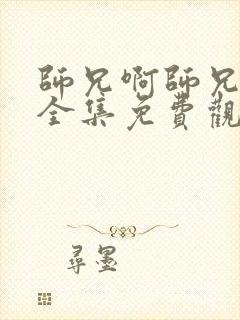 師兄啊師兄
全集免費觀
尋墨